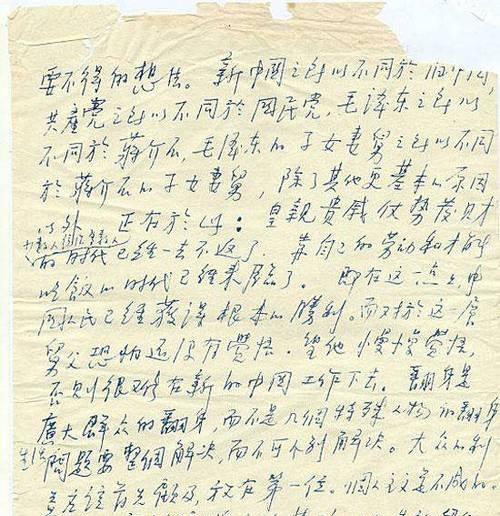 要不得的想法。新中國之所以不同於旧中国，
共產党之所以不同於國民党，毛泽东之所以
不同於蒋介石，毛泽东的子女妻舅之所以不同
於蒋介石的子女妻舅，除了其他更基本的原因
以外，正在於此：皇親貴戚仗势發財
少数人统治多数人
的时代已经一去不返了，靠自己的劳动和才能
吃饭的时代已经来临了。即在这一点上，中
国人民已经獲得根本的勝利。而对於这一层
舅父恐怕还没有覺悟。望他慢慢覺悟，
否则很难在新的中國工作下去。翻身是
廣大群众的翻身，而不是几個特殊人物的翻身
生活問題要整個解决，而不可个別解决。大众的利
益应该首先顧及，放在第一位。個人主义是不成的。